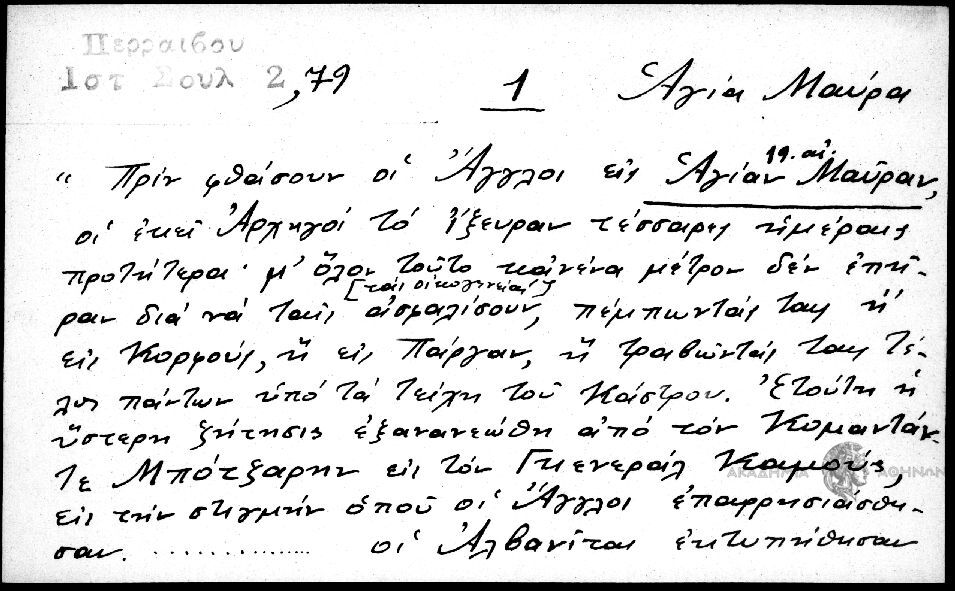 Περραιβου
Ιστ Σουλ 2,79 1 Ἁγία Μαύρα
19. αἰ.
"Πρίν φθάσουν οἱ Ἄγγλοι εἰς Ἁγίαν Μαῦραν,
οἱ ἐκεῖ Ἀρχηγοί τό ἤξευραν τέσσαρες ἡμέρας
προτήτερα· μ' ὅλον τοῦτο κανένα μέτρον δέν ἐπῆ-
[ταῖς οἰκογενείαις]
ραν διά νά ταῖς ἀσφαλίσουν, πέμπωντάς ταις ἤ
εἰς Κορφούς, ἤ εἰς Πάργαν, ἤ τραβῶντάς ταις τέ-
λος πάντων ὑπό τά τείχη τοῦ Κάστρου. Ἐτούτη ἡ
ὕστερη ζήτησις ἐξανανεώθη ἀπό τόν Κομαντάν-
τε Μπότζαρην εἰς τόν Γκενεράλ Καμούς,
ΑΚΑΔΗΜΙΑ ΑΘΗΝΩΝ
εἰς τήν στιγμήν ὁποῦ οἱ Ἄγγλοι ἐπαρρησιάσθη-
σαν. ............... οἱ Ἀλβανῖται ἐκτυπήθησαν